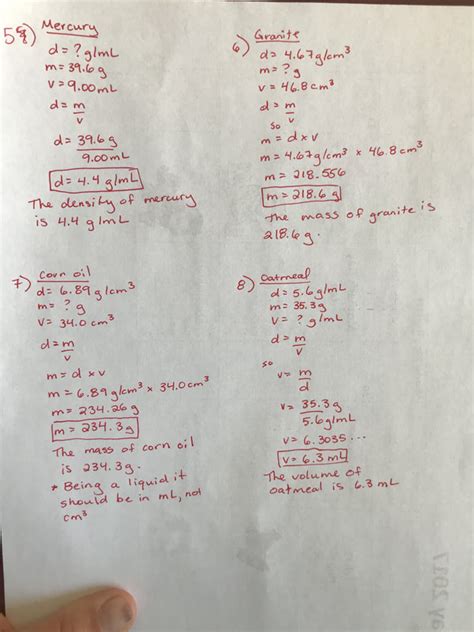 5&8) Mercury
d = ? g/mL
m = 39.6 g
v = 9.00 mL
d = m
v
d = 39.6 g
9.00 mL
d = 4.4 g/mL
The density of mercury
is 4.4 g/mL
6) Granite
d = 4.67 g/cm³
m = ? g
v = 46.8 cm³
d = m
v
so
m = d x v
m = 4.67 g/cm³ x 46.8 cm³
m = 218.556
m = 218.6 g
The mass of granite is
218.6 g.
7) Corn oil
d = 6.89 g/cm³
m = ? g
v = 34.0 cm³
d = m
v
m = d x v
m = 6.89 g/cm³ x 34.0 cm³
m = 234.26 g
m = 234.3 g
The mass of corn oil
is 234.3 g.
* Being a liquid it
should be in mL, not
cm³
8) Oatmeal
d = 5.6 g/mL
m = 35.3 g
v = ? g/mL
d = m
v
so
v = m
d
v = 35.3 g
5.6 g/mL
v = 6.3035...
v = 6.3 mL
The volume of
oatmeal is 6.3 mL
ay 2017